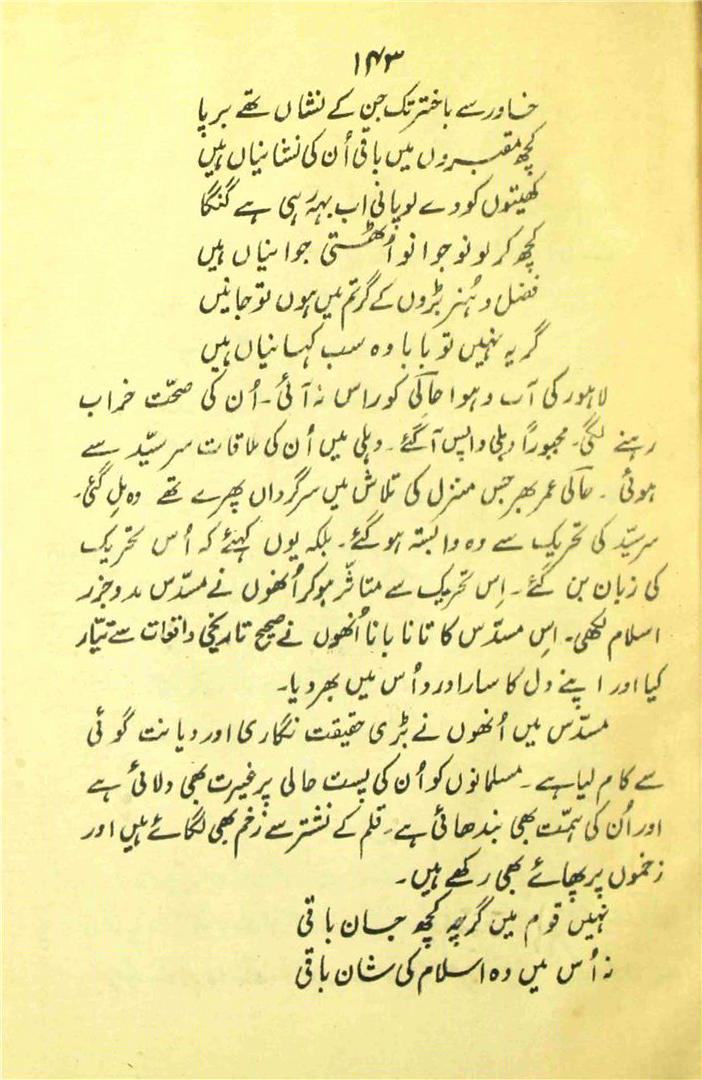 ۱۴۳
خاور سے باختر تک جن کے نشاں تھے برپا
کچھ مقبروں میں باقی اُن کی نشانیاں ہیں
کھیتوں کو دے لو پانی اب بہہ رہی ہے گنگا
کچھ کر لو نوجوانو اُٹھتی جوانیاں ہیں
فضل و ہُنر بڑوں کے گر تم میں ہوں تو جانیں
گر یہ نہیں تو بابا وہ سب کہانیاں ہیں
لاہور کی آب و ہوا حالی کو راس نہ آئی۔ اُن کی صحّت خراب
رہنے لگی۔ مجبوراً دہلی واپس آ گئے۔ دہلی میں اُن کی ملاقات سرسیّد سے
ہوئی ۔ حالی عمر بھر جس منزل کی تلاش میں سرگرداں پھرے تھے وہ مل گئی۔
سرسیّد کی تحریک سے وہ وابستہ ہو گئے۔ بلکہ یوں کہئے کہ اُس تحریک
کی زبان بن گئے۔ اِس تحریک سے متاثّر ہو کر اُنھوں نے مسدّس مدو جزر
اسلام لکھی۔ اِس مسدّس کا تانا بانا اُنھوں نے صحیح تاریخی واقعات سے تیّار
کیا اور اپنے دل کا سارا درد اُس میں بھر دیا۔
مسدّس میں اُنھوں نے بڑی حقیقت نگاری اور دیانت گوئی
سے کام لیا ہے۔ مسلمانوں کو اُن کی پست حالی پر غیرت بھی دلائی ہے
اور اُن کی ہمّت بھی بندھائی ہے۔ قلم کے نشتر سے زخم بھی لگائے ہیں اور
زخموں پر پھائے بھی رکھے ہیں۔
نہیں قوم میں گرچہ کچھ جان باقی
نہ اُس میں وہ اسلام کی شان باقی